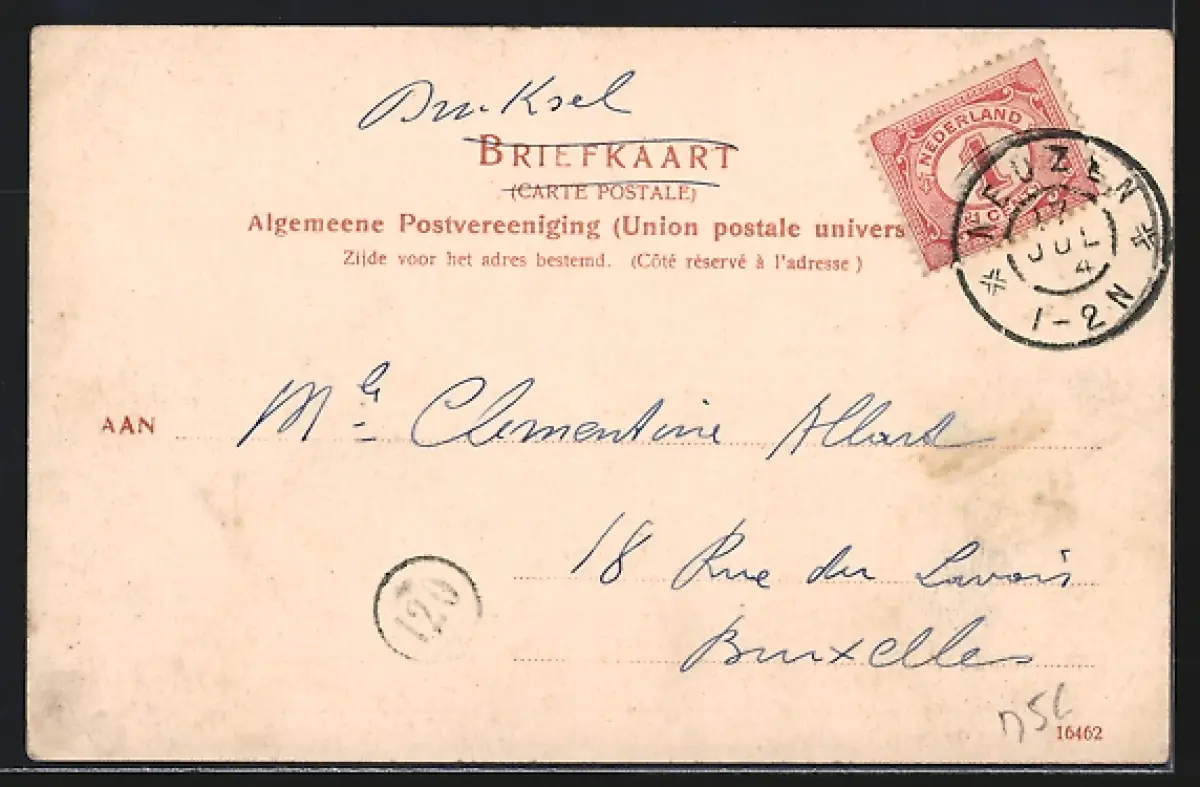 Druksel
BRIEFKAART
(CARTE POSTALE)
Algemeene Postvereeniging (Union postale univers
Zijde voor het adres bestemd. (Côté réservé à l'adresse)
NEDERLAND
1
CENT
NEUZEN
17
JUL
4
1-2N
AAN Mle Clementine Allard
18 Rue du Lavoir
Bruxelles
120
16462